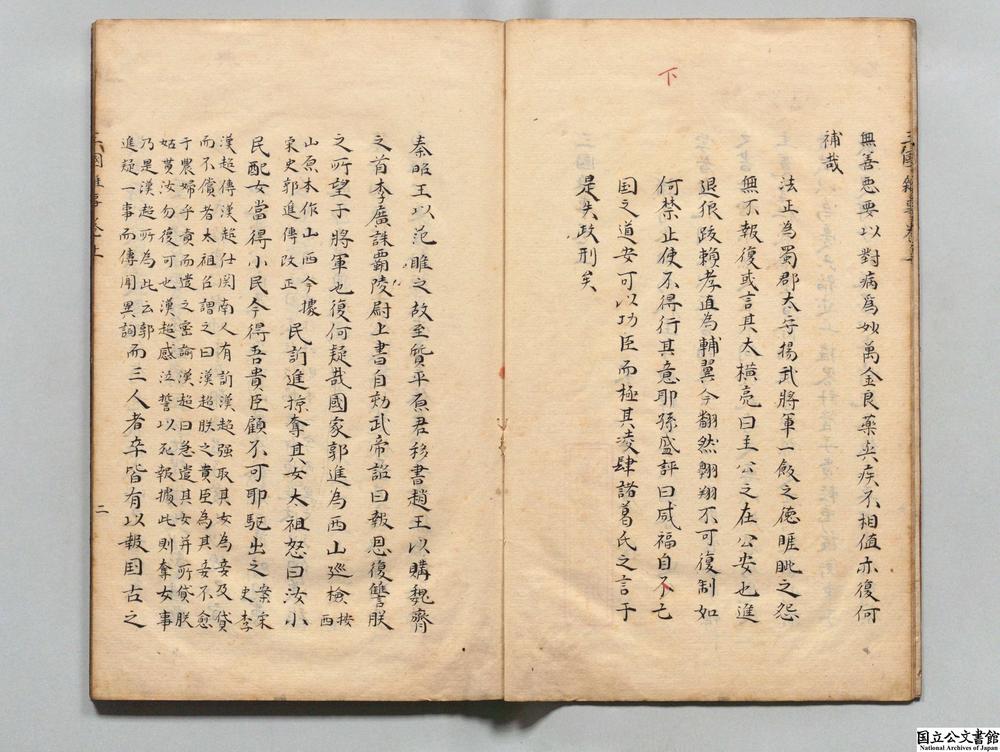 下
無善悪要以對病為妙萬金良藥與疾不相值亦復何
補哉
法正為蜀郡太守揚武將軍一飯之德睚眦之怨
無不報復或言其太橫亮曰主公之在公安也進
退狼跋賴孝直為輔翼今翻然翱翔不可復制如
何禁止使不得行其意耶孫盛評曰威福自下亡
国之道安可以功臣而極其凌肆諸葛氏之言于
是失政刑矣
秦昭王以范睢之故至質平原君移書趙王以購魏齊
之首李廣誅霸陵尉上書自劾武帝詔曰報恩復讐朕
之所望于將軍也復何疑哉國家郭進為西山廵檢按西
山原本作山西今據
宋史郭進傳改正民訴進掠奪其女太祖怒曰汝小
民配女當得小民今得吾貴臣顧不可耶驅出之案宋史李
漢超傳漢超仕関南人有訴漢超强取其女為妾及貸
而不償者太祖召謂之曰漢超朕之貴臣為其妾不愈
于農婦乎責而遣之密諭漢超曰急遣其女并所貸朕
姑貰汝勿復可也漢超感泣誓以死報據此則奪女事
乃是漢超所為此云郭
進疑一事而傳聞異詞而三人者卒皆有以報国古之
二
国立公文書館
National Archives of Japan